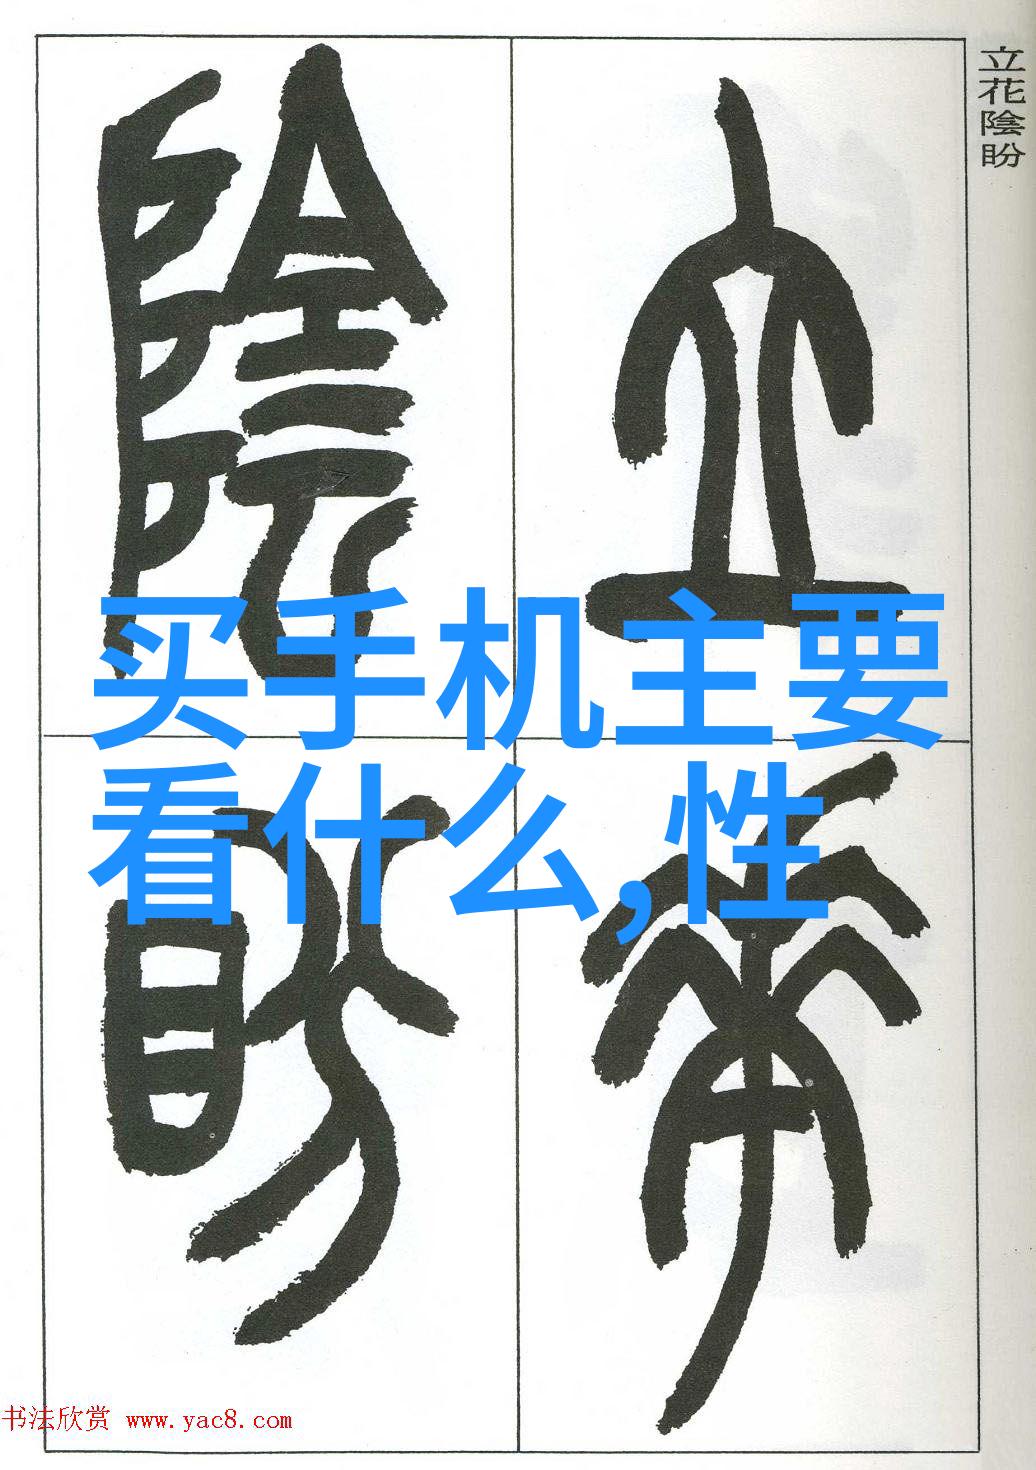 立花陰盼
立
陰
花
盼
买手机主要
看什么,性
书法欣赏 www.yac8.com